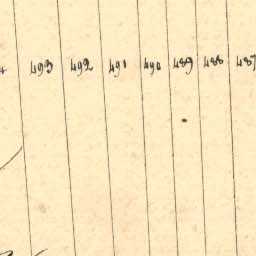 493 492 491 490 489 488 487